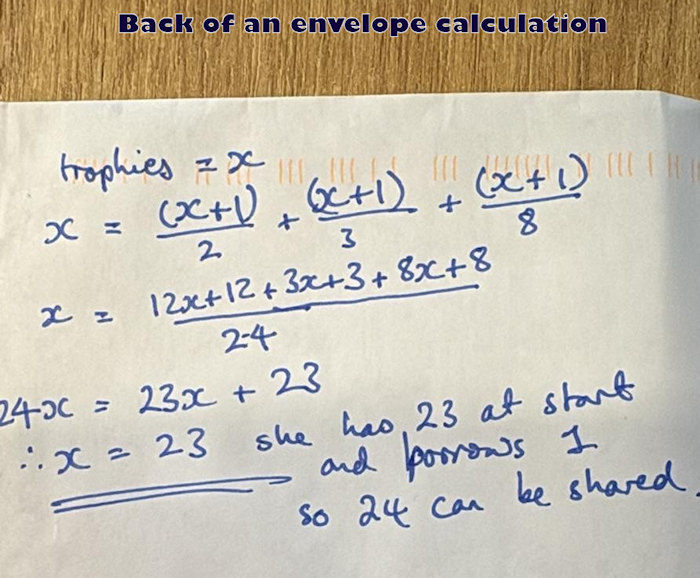 Back of an envelope calculation
trophies = x
x = (x+1)/2 + (x+1)/3 + (x+1)/8
x = 12x+12+3x+3+8x+8/24
24x = 23x + 23
∴ x = 23 she has 23 at start
and borrows 1
so 24 can be shared.